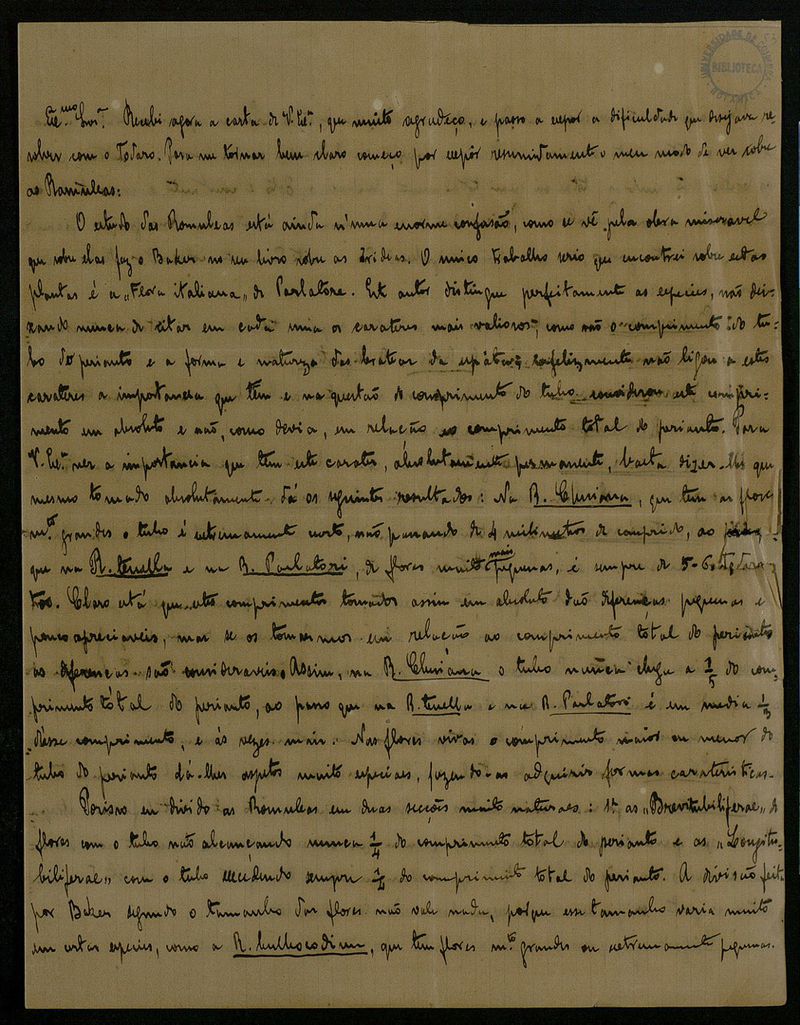 UNIVERSIDADE DE COIMBRA
BIBLIOTECA
BOTANICA
Ex.mo Snr. Recebi agora a carta de V. Ex.a, que muito agradeço, e passo a expor a dificuldade que desejava re-
solver com o Todaro. Para me tornar bem claro começo por expôr resumidamente o meu modo de ver sobre
as Romuleas:
O estudo das Romuleas está ainda n'uma enorme confusão, como se vê pela obra miseravel
que sobre elas faz o Baker no seu livro sobre as Irideas. O unico trabalho serio que encontrei sobre estas
plantas é a „Flora italiana„ de Parlatore. Este autor distingue perfeitamente as especies, não dei-
xando nunca de citar em cada uma os carateres mais valiosos, como são o comprimento do tu-
bo do perianto e a forma e natureza das brateas da espáta; infelizmente não ligou a estes
carateres a importancia que têm e na questão do comprimento do tubo considerou este compri-
mento em absoluto e não, como devia, em relação ao comprimento total do perianto. Para
V. Ex.a ver a importancia que têm este carater, absolutamente permanente, basta dizer-lhe que
mesmo tomado absolutamente dá os seguintes resultados: Na R. Clusiana, que tem as flores
m.to grandes o tubo é extremamente curto, não passando de 4 milimetros de comprido, ao passo
que na R. tenella e na R. Parlatori, de flores muito mais pequenas, é sempre de 5-6
Claro está que estes comprimentos tomados assim em absoluto dão diferenças pequenas e
pouco apreciaveis, mas se os tomarmos em relação ao comprimento total do perianto
as diferenças são consideraveis. Assim, na R. Clusiana o tubo nunca chega a 1/5 do com-
primento total do perianto, ao passo que na R. tenella e na R. Parlatori é em media 1/3
d'esse comprimento, e ás vezes mais. Nas flores vivas o comprimento maior ou menor do
tubo do perianto dá-lhes aspetos muito especiaes, fazendo-as adquirir formas carateristicas.
Porisso eu divido as Romuleas em duas secções muito naturaes: 1.a as „Brevitubiflorae„ de
flores com o tubo não alcançando nunca 1/4 do comprimento total do perianto e as „Longitu-
biflorae„ com o tubo excedendo sempre 1/4 do comprimento total do perianto. A divisão feita
por Baker segundo o tamanho das flores não vale nada, porque esse tamanho varia muito
em certas especies, como a R. bulbocodium, que tem flores m.to grandes ou extremamente pequenas.